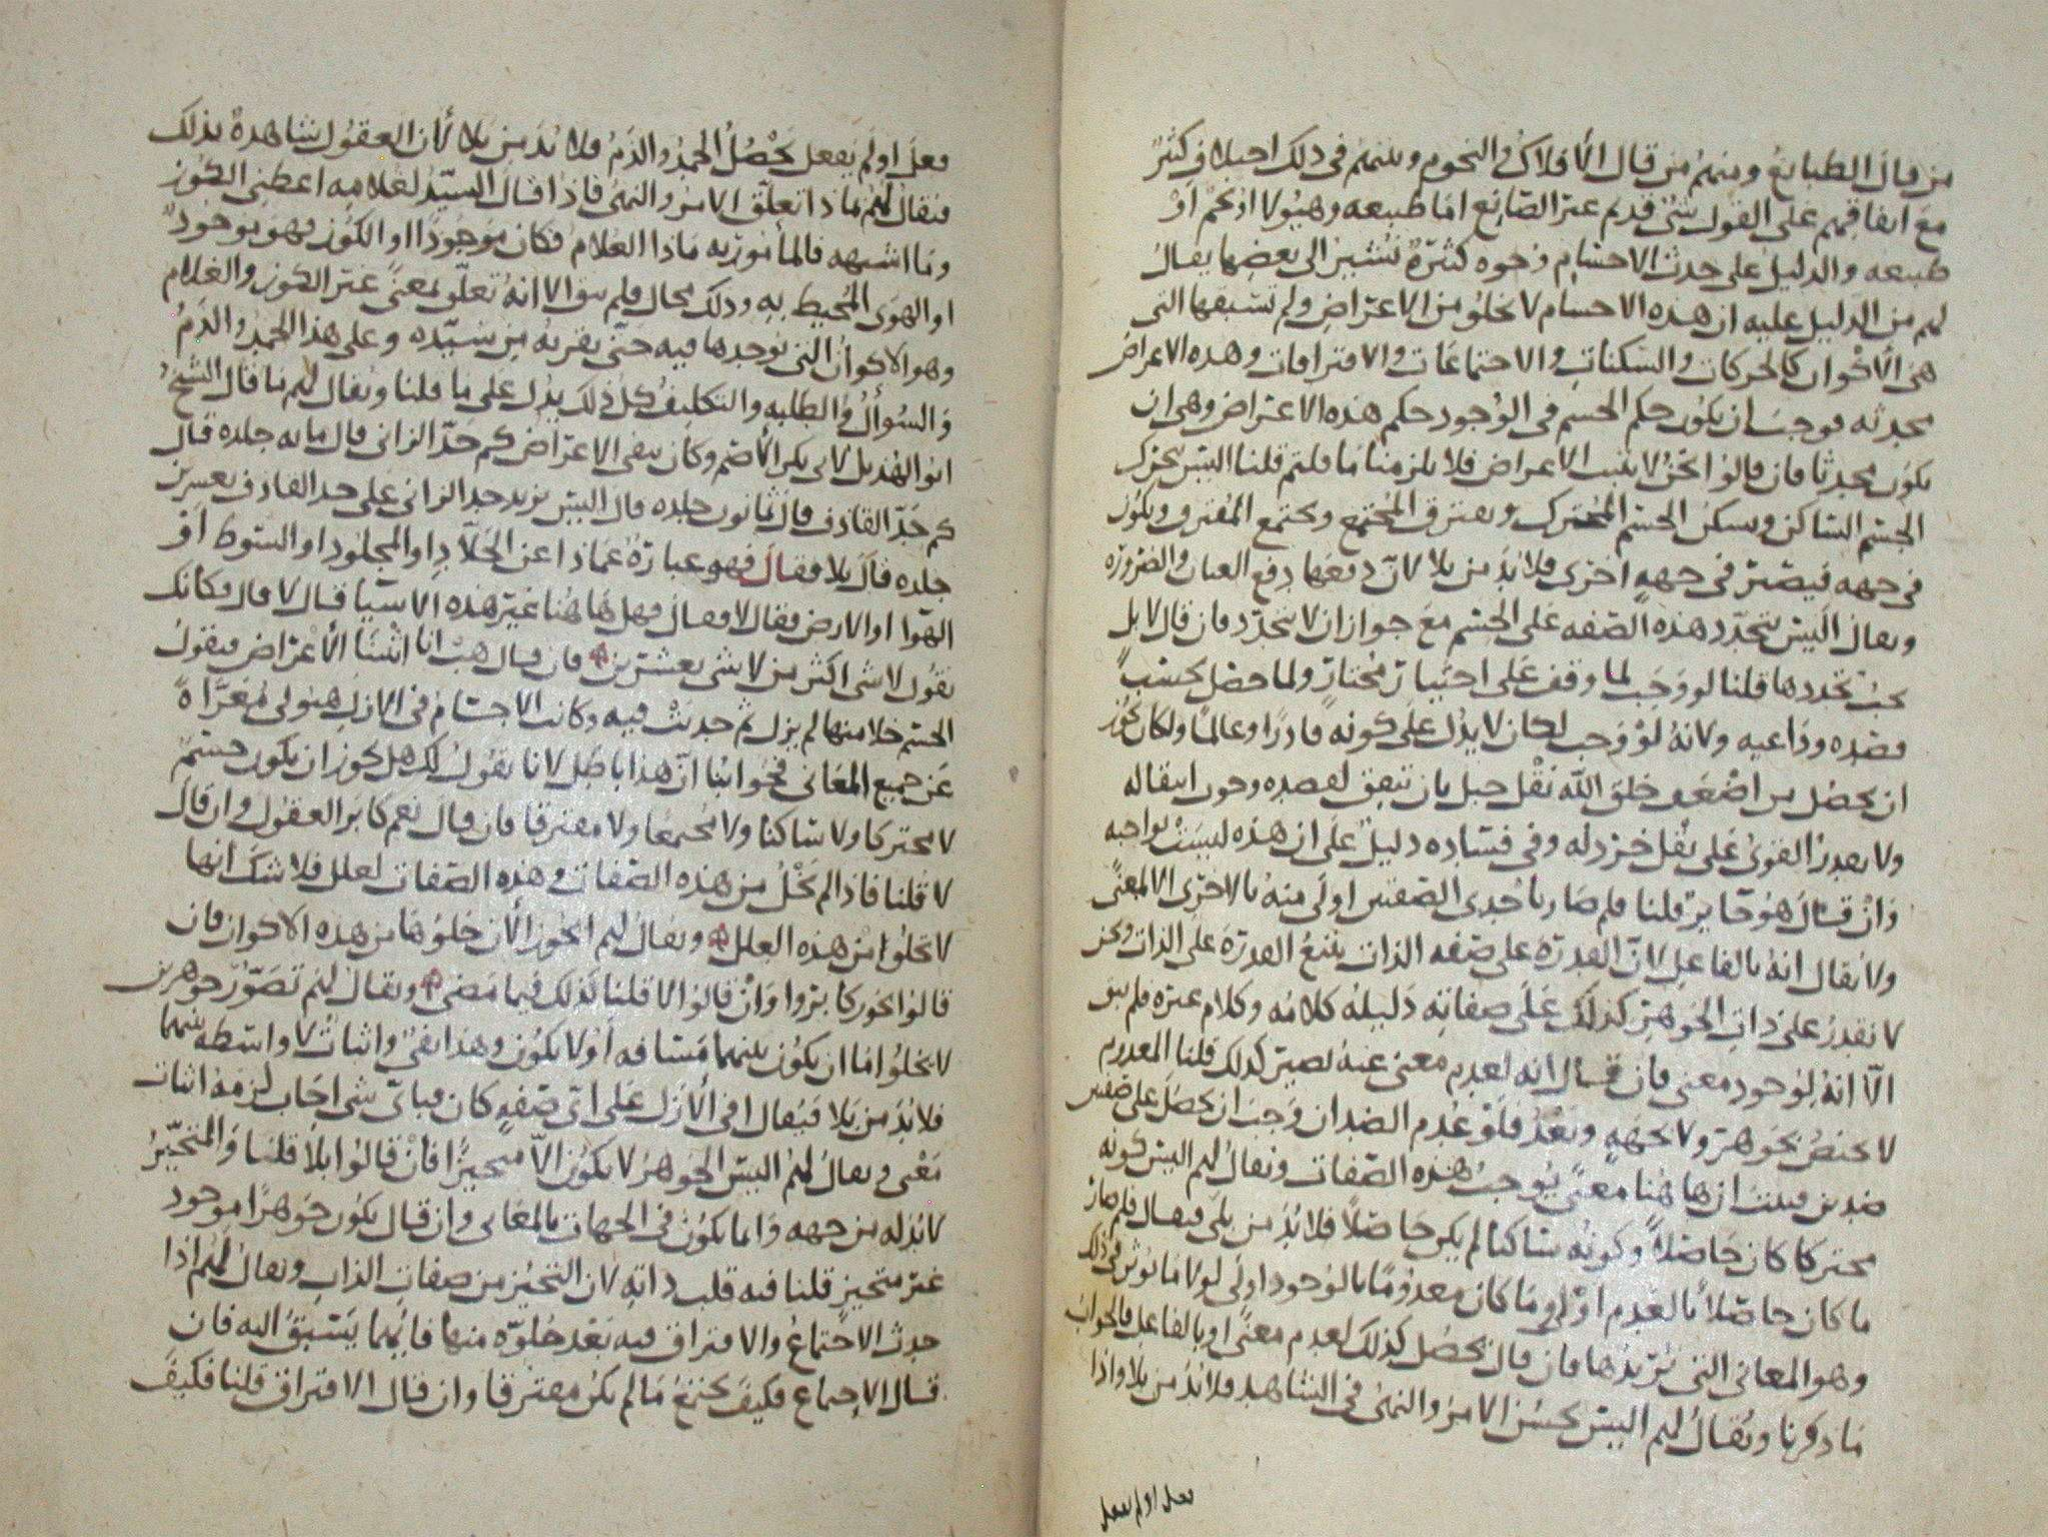 من قال الطبائع ومنهم من قال الأفلاك والنجوم وبينهم في ذلك اختلاف كثير
مع اتفاقهم على القول بشئ قديم غير الصانع اما طبيعه وهيولا او نجم او
طبيعه والدليل على حدث الاجسام وجوه كثيرة نشير الى بعضها يقال
لهم من الدليل عليه ان هذه الاجسام لا تخلو من الاعراض ولم تسبقها التي
هي الأكوان كالحركات والسكنات والاجتماعات والافتراقات وهذه الاعراض
محدثه فوجب ان يكون حكم الجسم في الوجود حكم هذه الاعراض وهي ان
يكون محدثا فان قالوا نحن لا نثبت الاعراض فلا يلزمنا ما قلتم قلنا اليس يتحرك
الجسم الساكن ويسكن الجسم المتحرك ويفترق المجتمع ويجتمع المفترق ويكون
في جهه فيصير في جهه اخرى فلا بد من بلا لان دفعها دفع العيان والضرورة
ويقال اليس تتجدد هذه الصفه على الجسم مع جواز ان لا تتجدد فان قال لا بل
يجب تجددها قلنا لو وجب لما وقف على اختيار مختار ولما حصل بحسب
قصده وداعيه ولانه لو وجب لكان لا يدل على كونه قادرا وعالما ولكان يجوز
ان يحصل من اضعف خلق الله نقل جبل بان يتفق لقصده وجوب انتقاله
ولا يقدر القوي على نقل خردله وفي فساده دليل على ان هذه ليست بواجبه
وان قال هو جايز قلنا فلم صار باحدى الصفتين اولى منه بالاخرى الا لمعنى
ولا يقال انه بالفاعل لان القدرة على صفه الذات يتبع القدرة على الذات ونحن
لا نقدر على ذات الجوهر كذلك على صفاته دليله كلامه وكلام غيره فلم يبق
الا انه لوجود معنى فان قال انه لعدم معنى عنه لصير كذلك قلنا المعدوم
لا يختص بجوهر ولا بجهه وبعد فلو عدم الضدان وجب ان يحصل على صفتين
ضدين فيثبت ان هاهنا معنى يوجب هذه الصفات ويقال لهم اليس كونه
متحركا كان حاصلا وكونه ساكنا لم يكن حاصلا فلا بد من بلى فيقال فلم صار
ما كان حاصلا بالعدم اولى وما كان معدوما بالوجود اولى لولا ما يوثر في ذلك
وهو المعاني التي نريدها فان قال يحصل كذلك لعدم معنى او بالفاعل فالجواب
ما ذكرنا ويقال لهم اليس يحسن الامر والنهي في الشاهد فلا بد من بلا واذا
فعل او لم يفعل
فعل او لم يفعل يحصل الحمد والذم فلا بد من بلا لأن العقول شاهدة بذلك
فيقال لهم ماذا تعلق الامر والنهي فاذا قال السيد لغلامه اعطني الكوز
وما اشبهه فالمأمور به ماذا الغلام فكان موجودا او الكوز فهو موجود
او الهوى المحيط به وذلك محال فلم يبق الا انه تعلق لمعنى غير الكوز والغلام
وهو الاكوان التي يوجدها فيه حتى يقربه من سيده وعلى هذا الحمد والذم
والسوأل والطلبه والتكليف كل ذلك يدل على ما قلنا ويقال لهم ما قال الشيخ
ابو الهذيل لابي بكر الأصم وكان ينفي الاعراض كم حد الزاني قال مايه جلده قال
كم حد القاذف قال ثمانون جلده قال اليس يزيد حد الزاني على حد القاذف بعشرين
جلده قال بلا فقال فهو عبارة عماذا عن الجلاد او المجلود او السوط او
الهوا او الارض فقال لا فقال فهل هاهنا غير هذه الاشيا قال لا قال فكانك
تقول لا شي اكثر من لا شي بعشرين فان قال هب انا اثبتنا الأعراض فيقول
الجسم خلا منها لم يزل ثم حدثت فيه وكانت الاجسام في الازل هيولى معراة
عن جميع المعاني فجوابنا ان هذا باطل لانا نقول لك هل يجوز ان يكون جسم
لا متحركا ولا ساكنا ولا مجتمعا ولا مفترقا فان قال نعم كابر العقول وان قال
لا قلنا فاذا لم يخل من هذه الصفات وهذه الصفات لعلل فلا شك انها
لا تخلوا من هذه العلل ويقال لهم ايجوز الأن خلوها من هذه الاكوان فان
قالوا يجوز كابروا وان قالوا لا قلنا كذلك فيما مضى ويقال لهم تصور جوهرين
لا يخلوا اما ان يكون بينهما مسافه او لا يكون وهذا نفي واثبات لا واسطه بينهما
فلا بد من بلا فيقال في الأزل على اي صفه كان فباي شي اجاب لزمه اثبات
معنى ويقال لهم اليس الجوهر لا يكون الا متحيزا فان قالوا بلا قلنا والمتحيز
لا بد له من جهه وانما يكون في الجهات بالمعاني وان قال يكون جوهرا موجود
غير متحيز قلنا فيه قلب ذاته لان التحيز من صفات الذات ويقال لهم اذا
حدث الاجتماع والافتراق فيه بعد خلوه منها فايهما يسبق اليه فان
قال الاجتماع فكيف يجتمع ما لم يكن مفترقا وان قال الافتراق قلنا فكيف